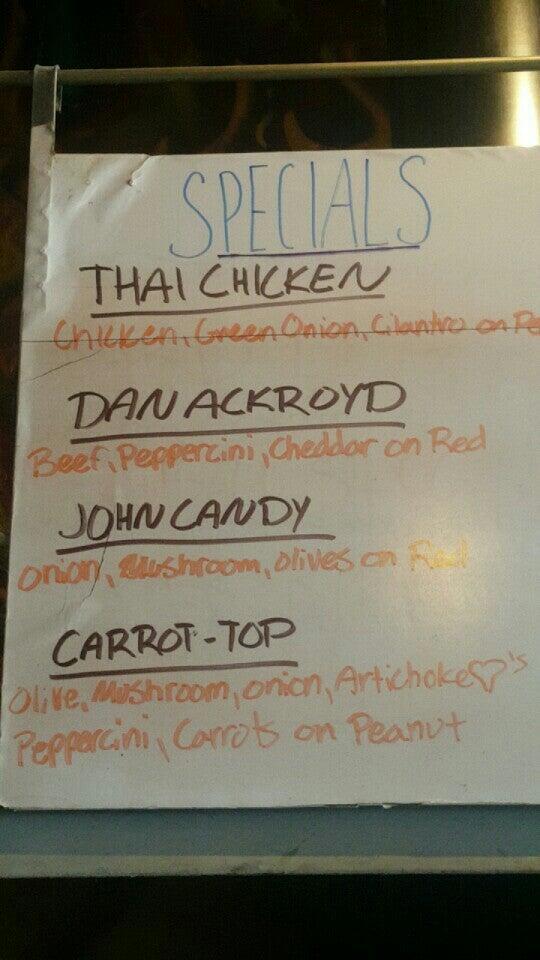 SPECIALS
THAI CHICKEN
Chicken, Green Onion, Cilantro on Pe
DAN ACKROYD
Beef, Peppercini, Cheddar on Red
JOHN CANDY
Onion, Mushroom, Olives on Red
CARROT-TOP
Olive, Mushroom, onion, Artichoke♡'s
Peppercini, Carrots on Peanut